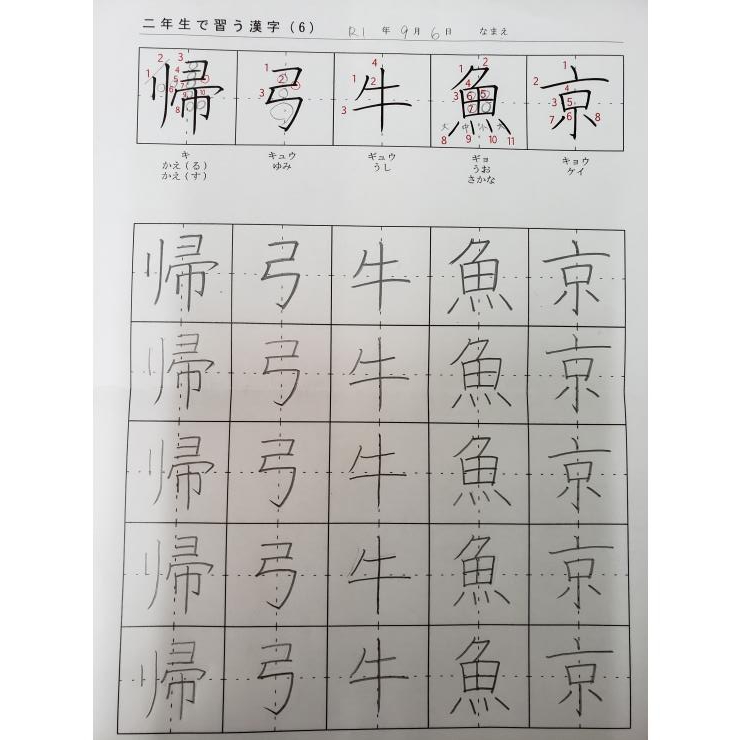 二年生で習う漢字（6） R1年9月6日 なまえ
帰 弓 牛 魚 京
キ キュウ ギュウ ギョ キョウ
かえ（る） ゆみ うし うお ケイ
かえ（す） さかな
帰 弓 牛 魚 京
帰 弓 牛 魚 京
帰 弓 牛 魚 京
帰 弓 牛 魚 京
帰 弓 牛 魚 京